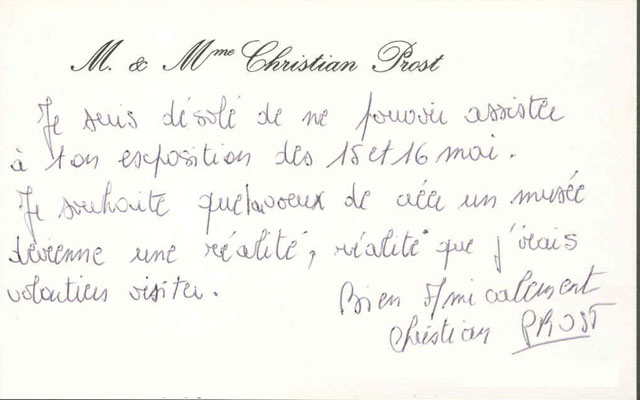 M. & Mme Christian Prost
Je suis désolé de ne pouvoir assister
à ton exposition des 15 et 16 mai.
Je souhaite que voeux de créer un musée
devienne une réalité, réalité que j'irais
volontiers visiter.
Bien Amicalement
Christian PROST